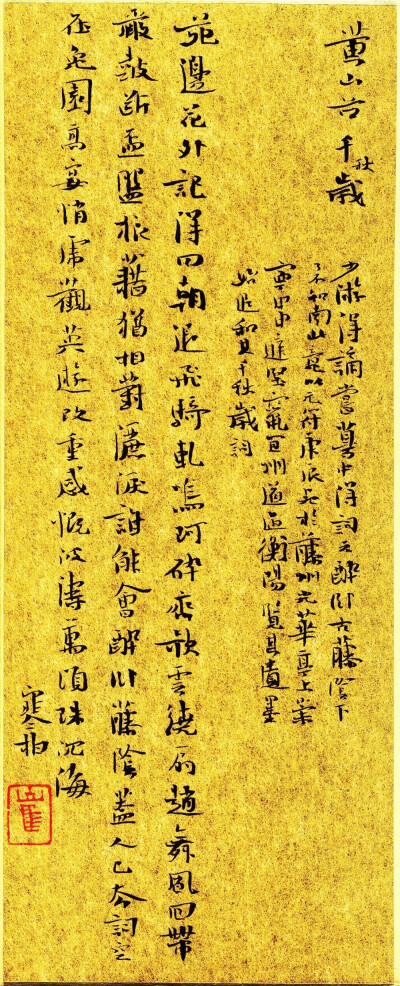 黃山谷千秋歲
少游得謫嘗夢中得詞云醉卧古藤陰下
了不知南北竟以元符庚辰死於藤州光華亭上崇
寧甲申庭堅竄宜州道過衡陽覽其遺墨
始追和其千秋歲詞
苑邊花外記得同朝退飛騎軋鳴珂碎齊歌雲繞扇趙舞風回帶
嚴鼓斷盃盤狼藉猶相對灑淚誰能會醉卧藤陰蓋人已去詞空
在兔園高宴悄虎觀英遊改重感慨波濤萬頃珠沉海
崔